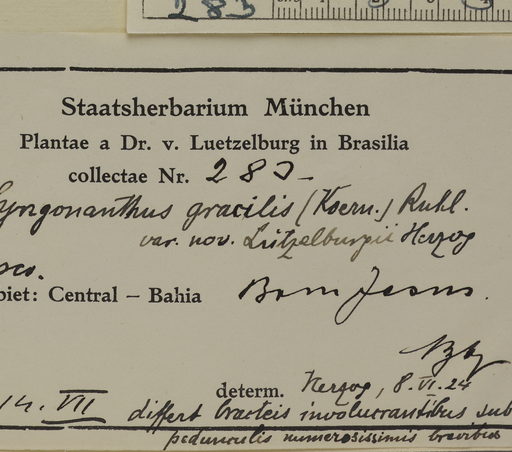 283
Staatsherbarium München
Plantae a Dr. v. Luetzelburg in Brasilia
collectae Nr. 283
Syngonanthus gracilis (Koern.) Ruhl.
var. nov. Lützelburgii Herzog
biet: Central – Bahia Bom Jesus.
determ. Herzog, 8.VI.24
14. VII differt bracteis involucrantibus sub
pedunculis numerosissimis brevibus